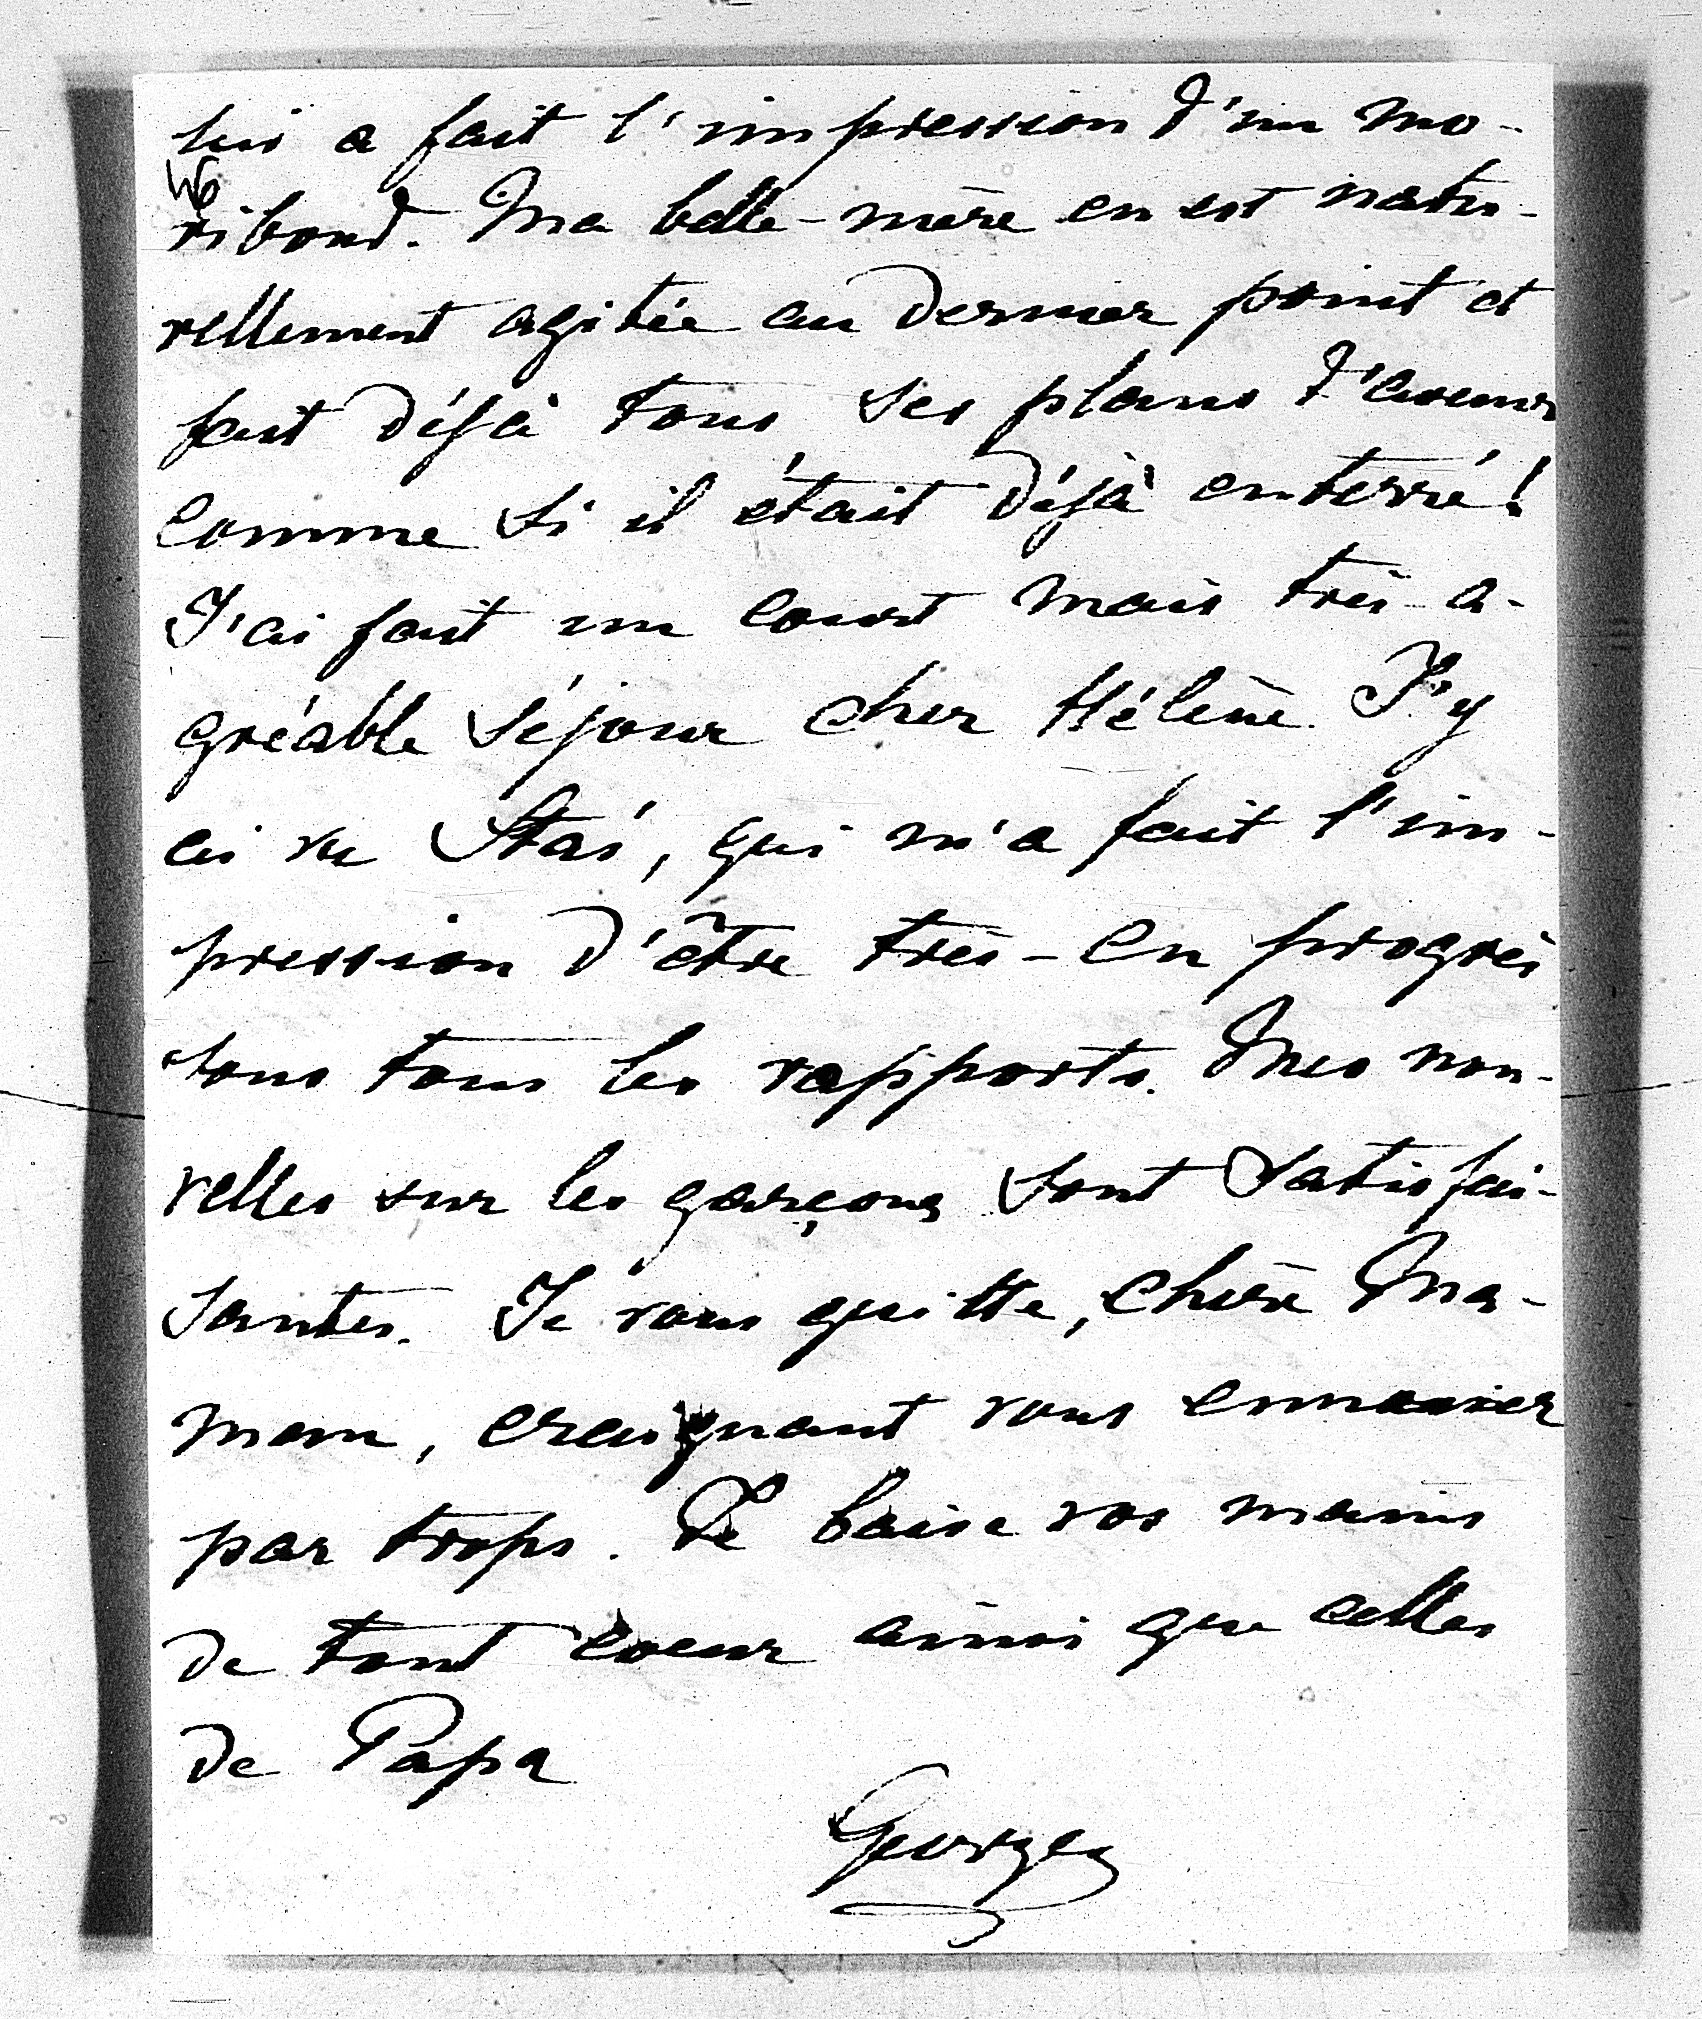 lui a fait l'impression d'un mo-
46
ribond. Ma belle-mère en est natu-
rellement agitée au dernier point et
fait déjà tous ses plans d'avenir
comme si il était déjà enterré!
J'ai fait un court mais très-a-
gréable séjour chez Hélène. J'y
ai vu Stas', qui m'a fait l'im-
pression d'être très-en progrès
sous tous les rapports. Mes nou-
velles sur les garçons sont satisfai-
santes. Je vous quitte, chère Ma-
man, craignant vous ennuier
par trops. Je baise vos mains
de tout coeur ainsi que celles
de Papa
Georges